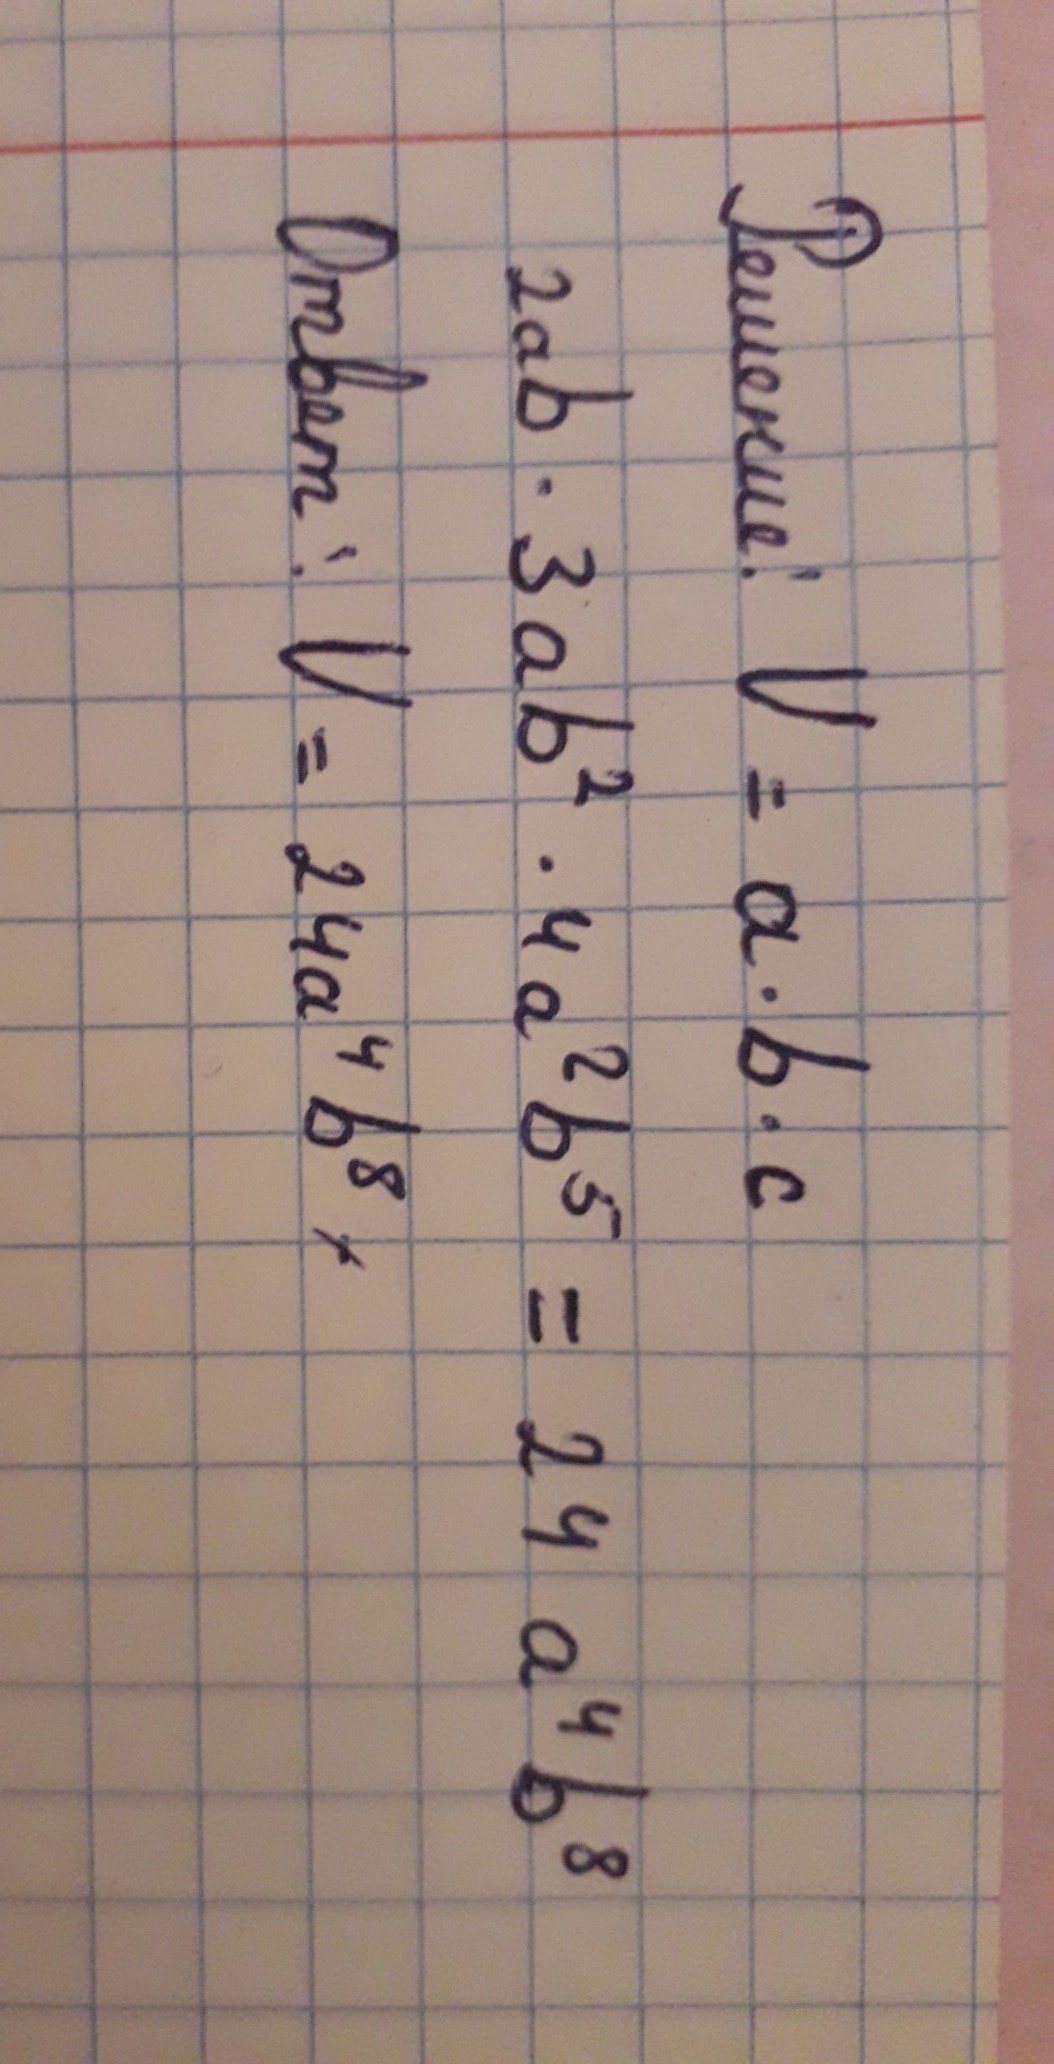 Решение: V = a · b · c
2ab · 3ab² · 4a²b⁵ = 24a⁴b⁸
Ответ: V = 24a⁴b⁸,